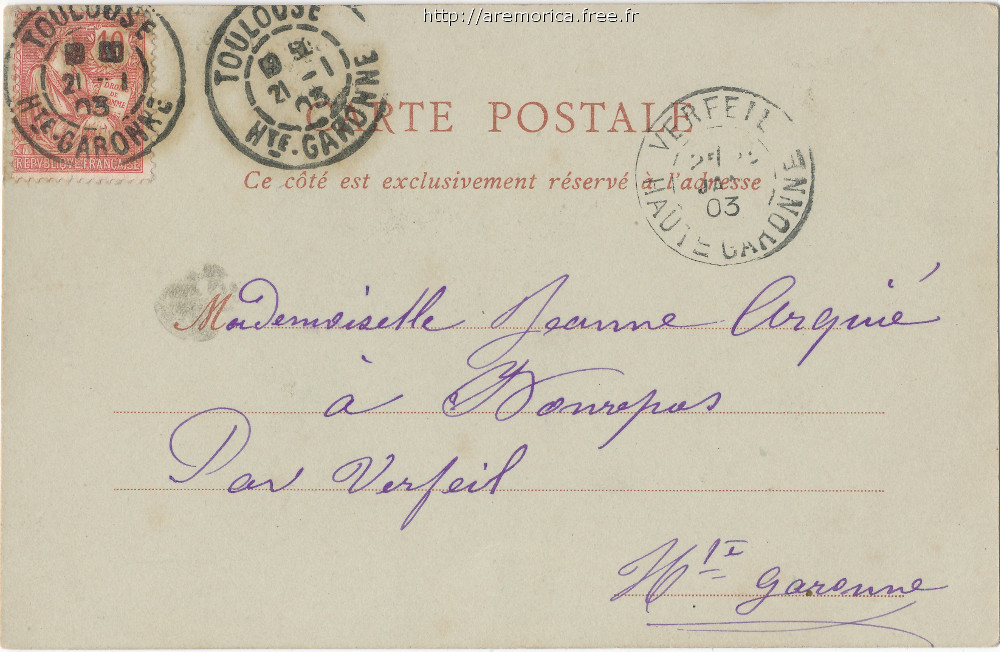 http://aremorica.free.fr
TOULOUSE
21 -1
03
HTE-GARONNE
10
DROITS
DE
L'HOMME
REPVBLIQVE FRANÇAISE
TOULOUSE
21 -1
03
HTE-GARONNE
CARTE POSTALE
Ce côté est exclusivement réservé à l'adresse
VERFEIL
03
HAUTE GARONNE
Mademoiselle Jeanne Arquié
à Bonrepos
Par Verfeil
Hte Garonne